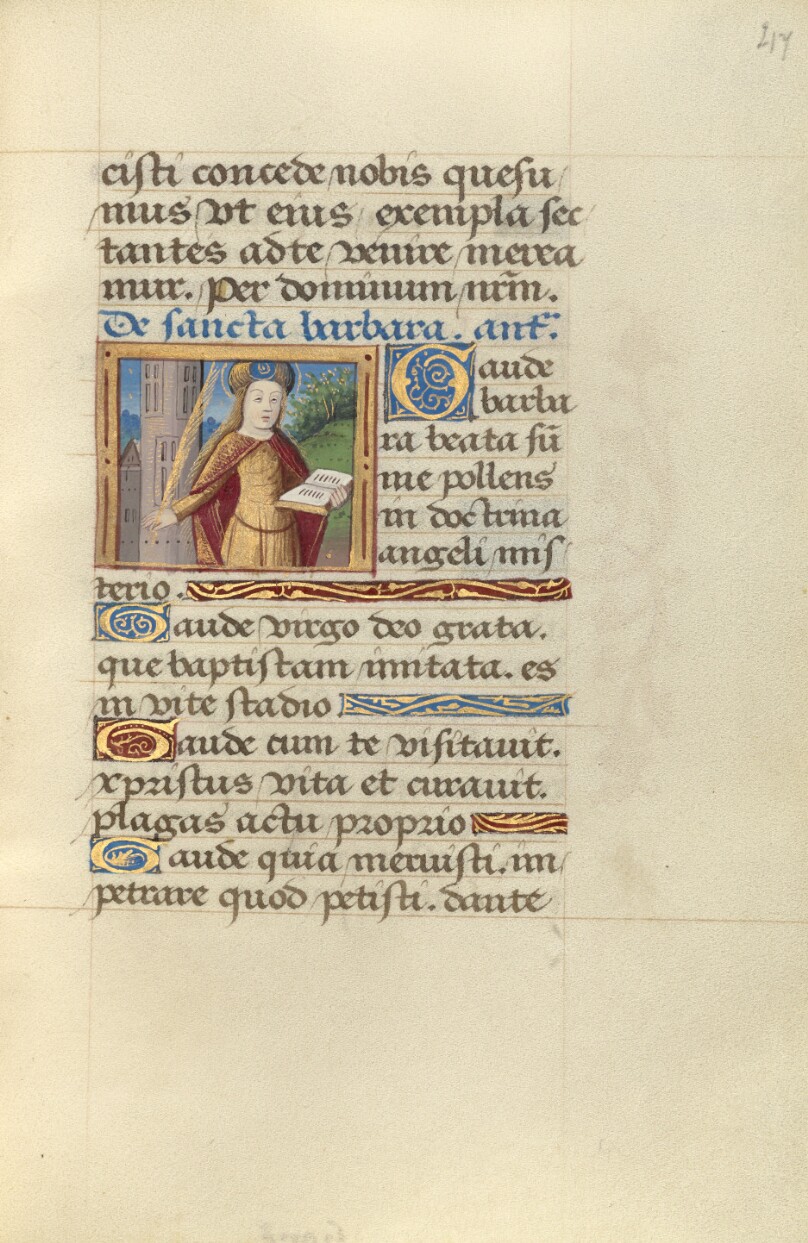 217
cisti concede nobis quesu
mus vt eius exempla sec
tantes ad te venire merea
mur. Per dominum nr̃m.
De sancta barbara. ant̃.
Gaude
barba
ra beata sũ
me pollens
in doctrina
angeli mis
terio.
Gaude virgo deo grata.
que baptistam imitata. es
in vite stadio
Gaude cum te visitauit.
xpristus vita et curauit.
plagas actu proprio
Gaude quia meruisti. im
petrare quod petisti. dante